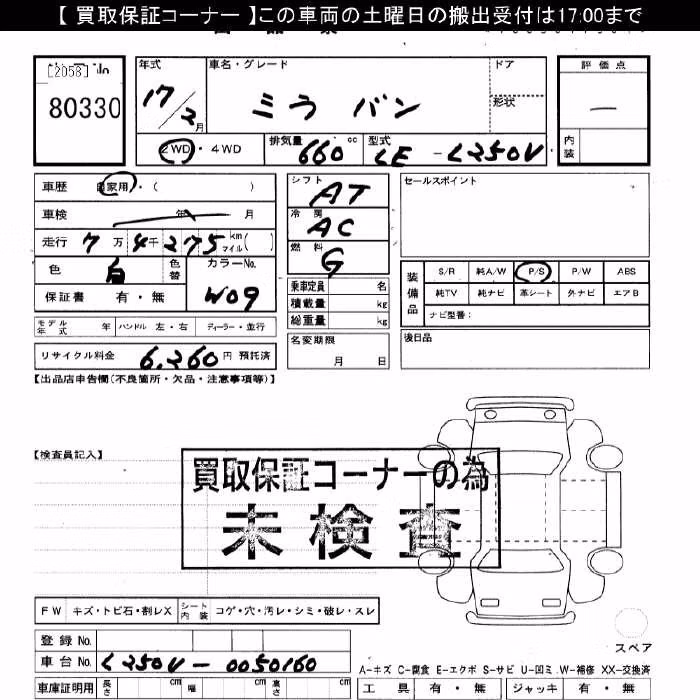 【 買取保証コーナー 】この車両の土曜日の搬出受付は17:00まで
[2058]
80330
年式
17/2月
車名・グレード
ミラ バン
ドア
形状
評価点
—
内装
2WD・4WD
排気量 660 cc
型式 LE-L250V
車歴 自家用・( )
シフト AT
セールスポイント
車検 年 月
冷房 AC
走行 7万4千275 km マイル( )
燃料 G
色 白 色替
カラーNo. W09
保証書 有・無
乗車定員 名
積載量 kg
総重量 kg
装備品
S/R 純A/W P/S P/W ABS
純TV 純ナビ 革シート 外ナビ エアB
ナビ型番:
モデル年式 年 ハンドル 左・右 ディーラー・並行
名変期限 月 日
後日品
リサイクル料金 6,260円 預託済
【出品店申告欄(不良箇所・欠品・注意事項等)】
【検査員記入】
買取保証コーナーの為
未検査
FW キズ・トビ石・割レX シート内装 コゲ・穴・汚レ・シミ・破レ・スレ
登録No.
車台No. L250V-0050160
スペア
A-キズ C-腐食 E-エクボ S-サビ U-凹ミ W-補修 XX-交換済
車庫証明用 長さ cm 幅 cm 高さ cm
工具 有・無 ジャッキ 有・無